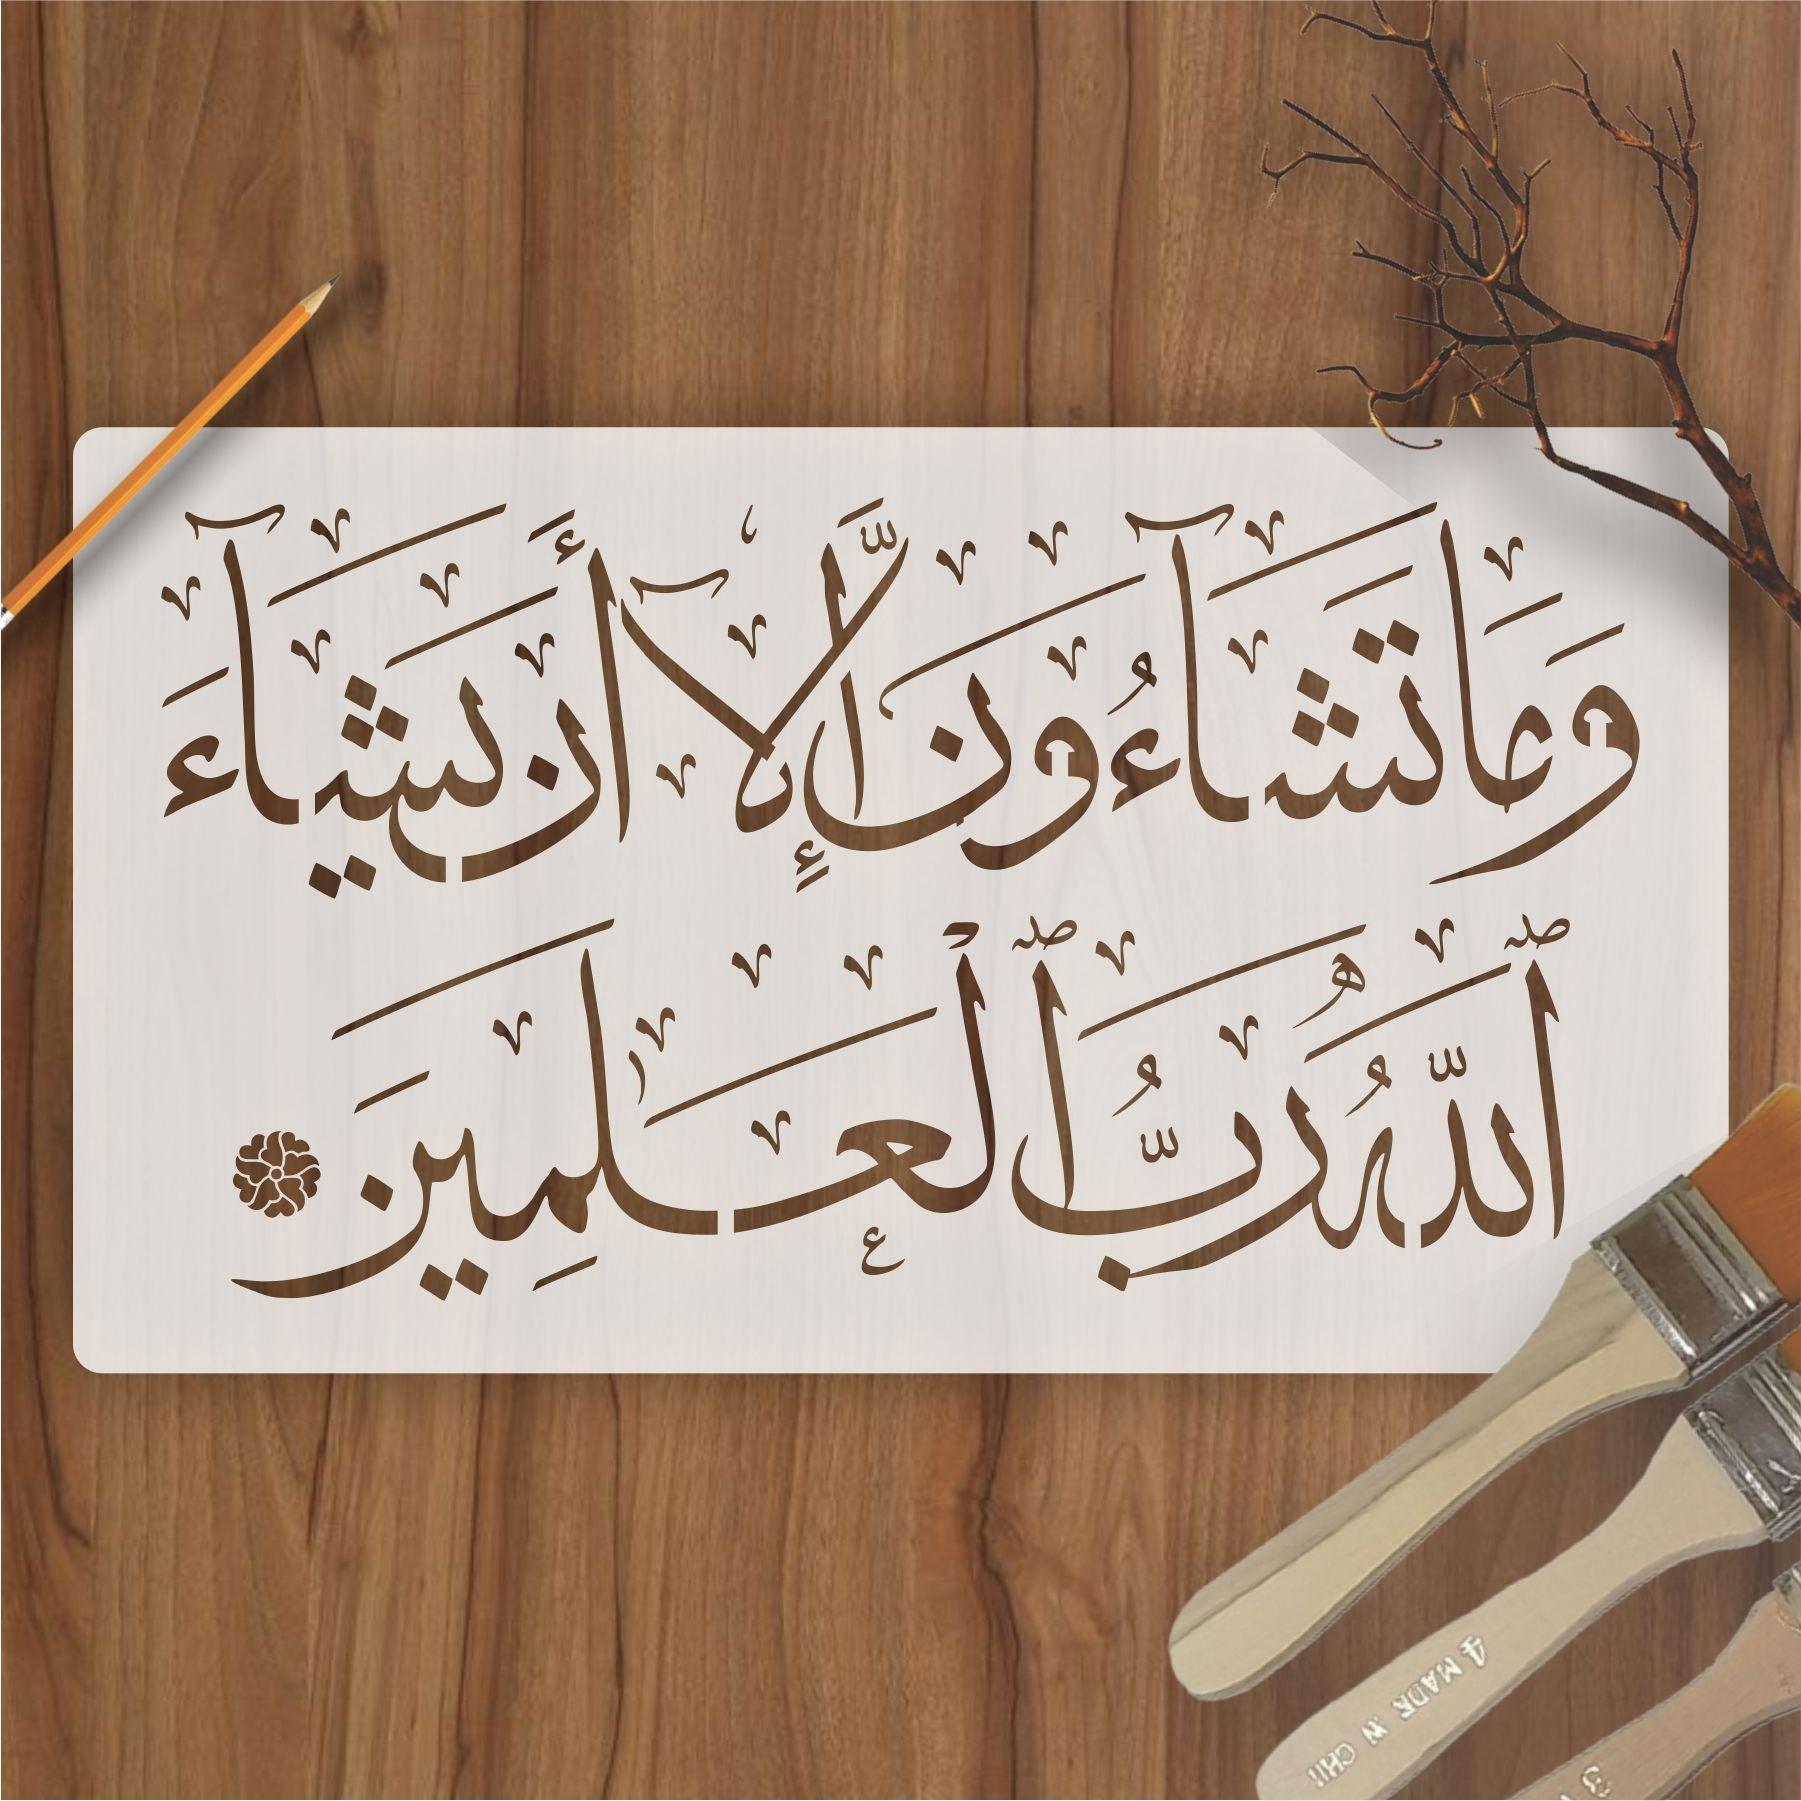 وَمَا تَشَآءُونَ إِلَّآ أَن يَشَآءَ
ٱللَّهُ رَبُّ ٱلْعَٰلَمِينَ
4 MADE IN CHI
3